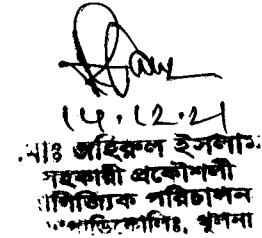 ১৫.১২.২১
মোঃ জহিরুল ইসলাম
সহকারী প্রকৌশলী
বাণিজ্যিক পরিচালন
খুলনা